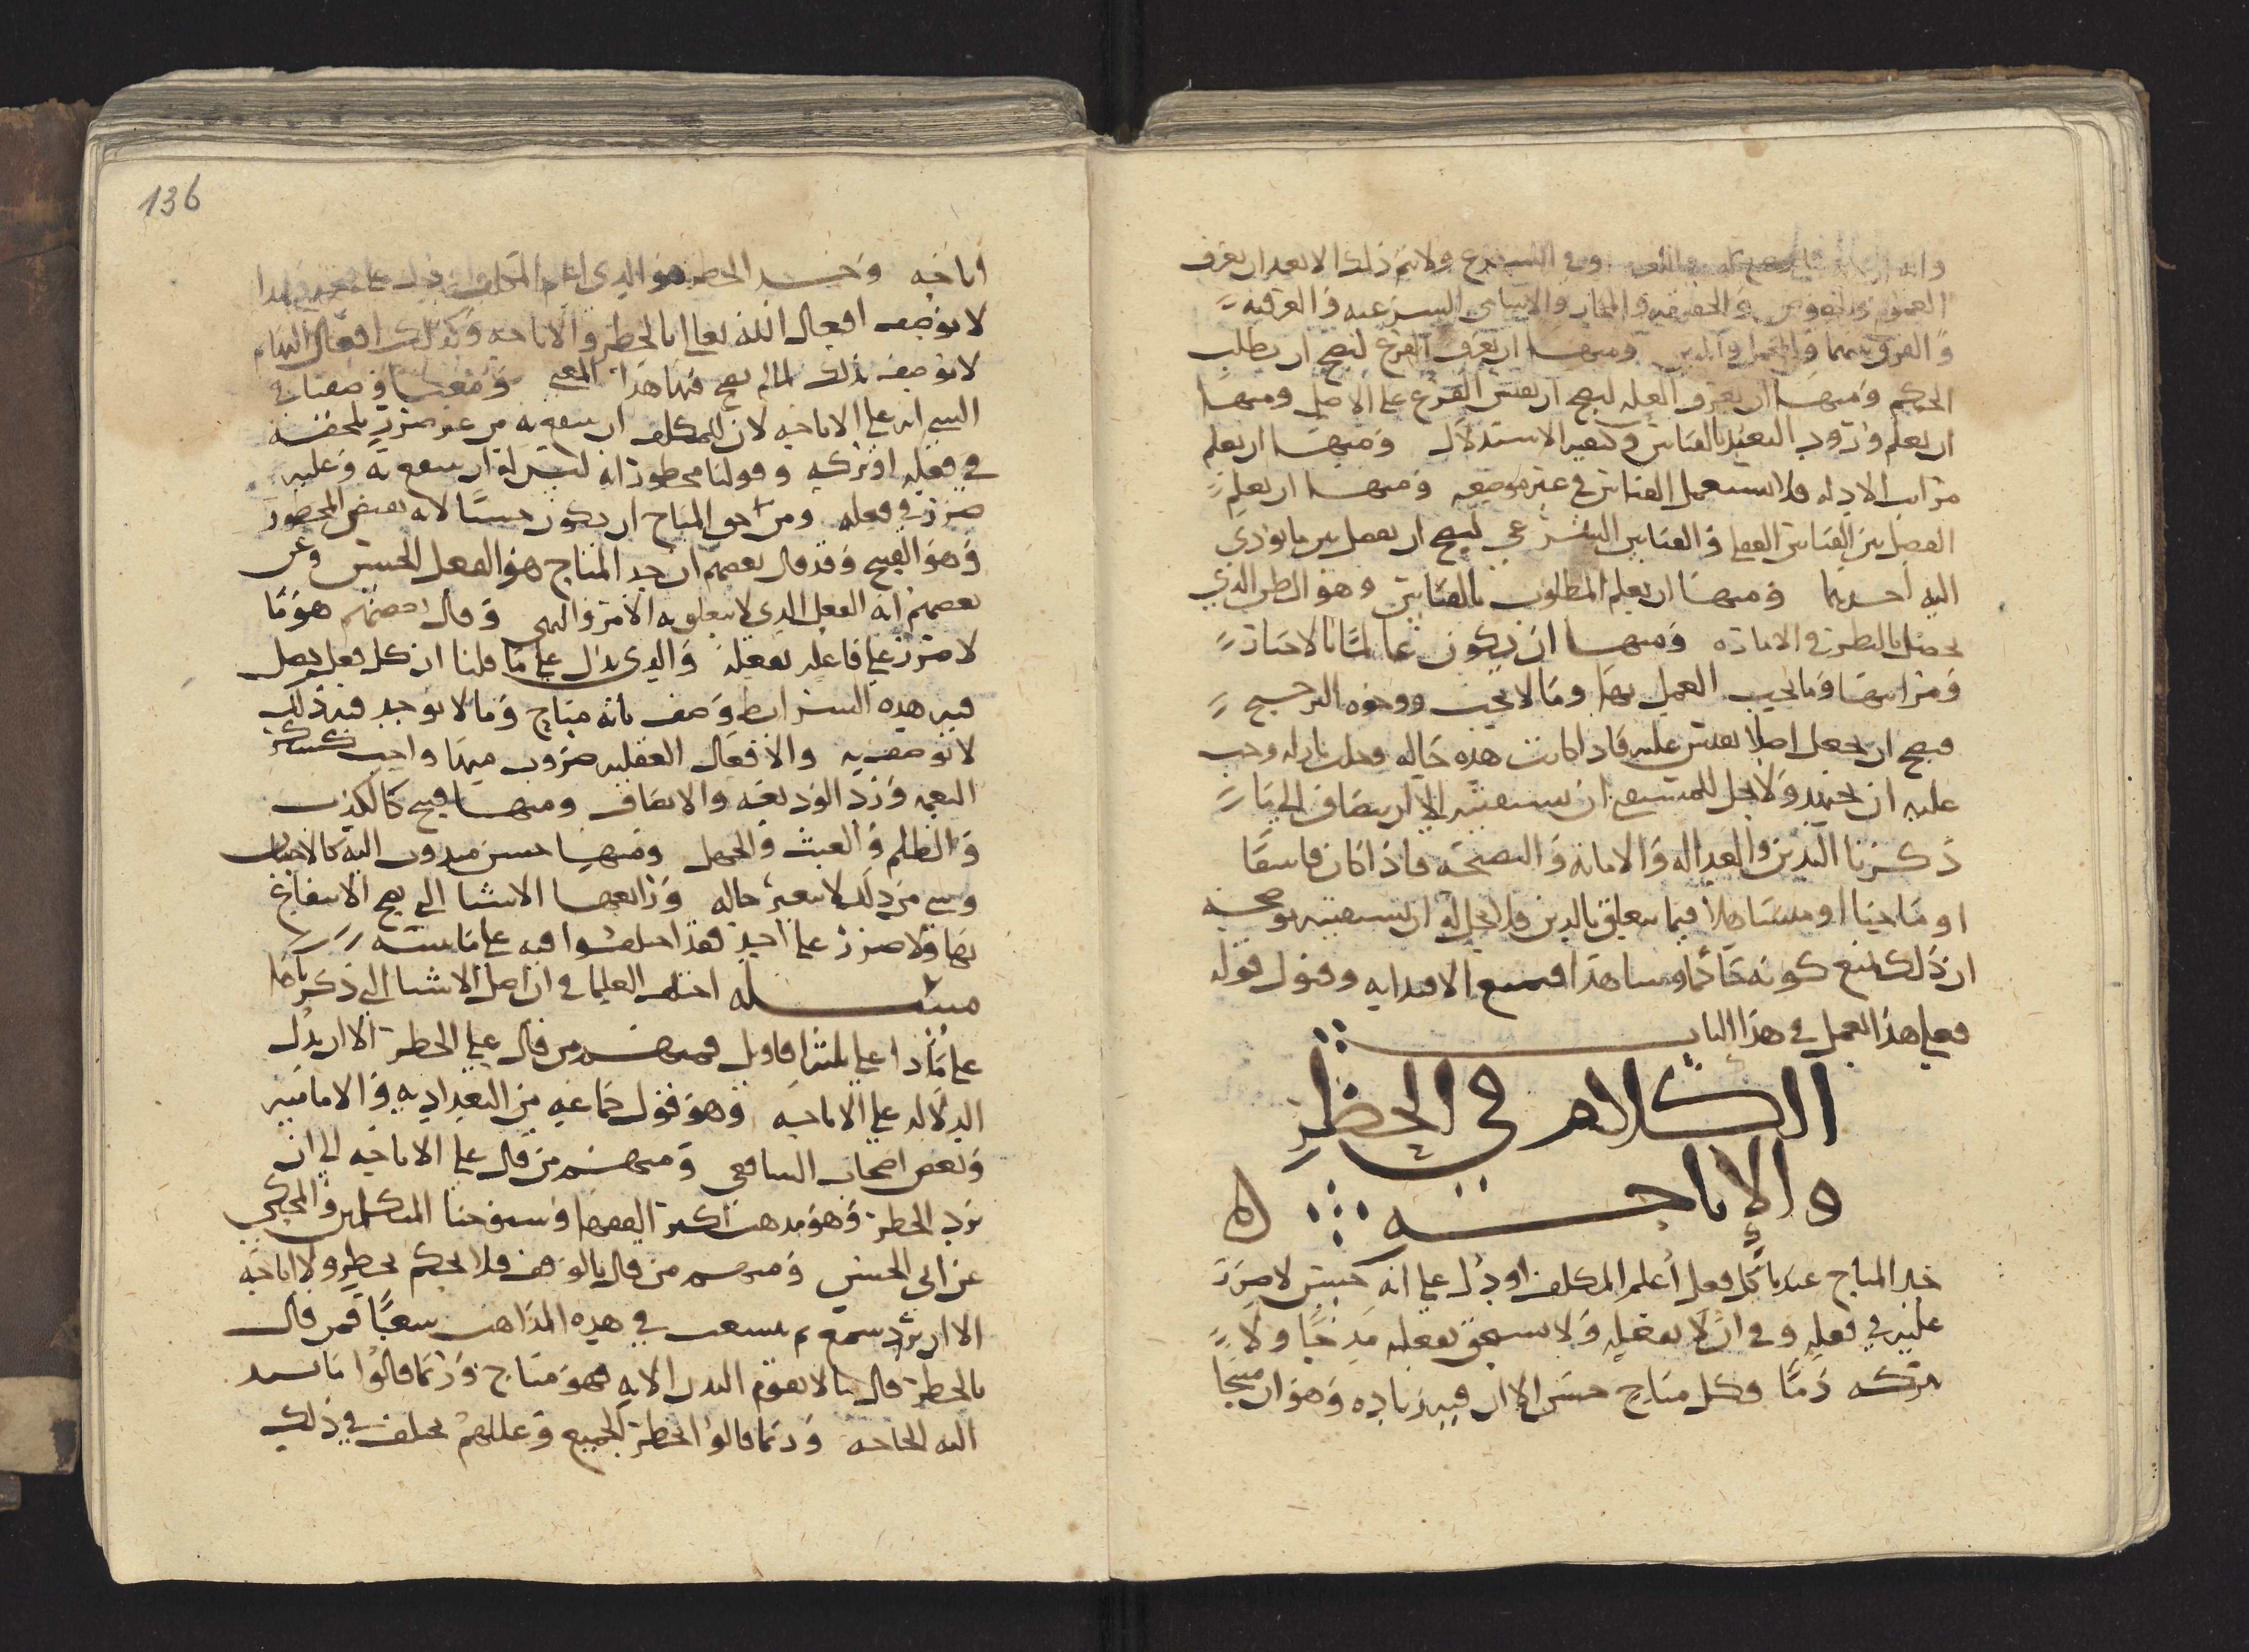 ولا يتم ذلك الا بعد ان يعرف
العموم والخصوص والحقيقة والمجاز والاسامي الشرعيه والعرفيه
والفرق بينهما والمجمل والمبين ومنها ان يعرف الفرع ليصح ان يطلب
الحكم ومنها ان يعرف العله ليصح ان يقيس الفرع على الاصل ومنها
ان يعلم ورود التعبد بالقياس وكيفيه الاستدلال ومنها ان يعلم
مراتب الادله فلا يستعمل القياس في غير موضعه ومنها ان يعلم
الفصل بين القياس العقلي والقياس الشرعي ليصح ان يفصل بين ما يودي
اليه احدهما ومنها ان يعلم المطلوب بالقياس وهو الظن الذي
يحصل بالنظر في الاماره ومنها ان يكون عالما بالاخبار
ومراتبها وما يجب العمل بها وما لا يجب ووجوه الترجيح
فيصح ان يجعل اصلا يقيس عليه فاذا كانت هذه حاله وجب
عليه ان يجتهد ولا يحل للمستفتي ان يستفتيه الا ان يضاف الى ما
ذكرنا التدين والعداله والامانه والنصيحه فاذا كان فاسقا
او ماجنا او متساهلا فيما يتعلق بالدين فلا يحل له ان يستفتيه
ان ذلك يمنع كونه حاكما وشاهدا فيمنع الاقتدا به وقبول قوله
فعلى هذا العمل في هذا الباب
الكلام في الحظر
والإباحه
حد المباح عندنا كل فعل أعلم المكلف او دل على انه حسن لا ضرر
عليه في فعله وفي ان لا يفعله ولا يستحق بفعله مدحا ولا
بتركه ذما وكل مباح حسن الا ان فيه زياده وهو ان مبيحا
136
اباحه وحد الحظر هو الذي اعلم المكلف او دل على
لا يوصف افعال الله تعالى بالحظر والاباحه وكذلك افعال البهائم
لا توصف بذلك لما لم يصح فيها هذا المعنى ومعنى وصفنا في
الشي انه على الاباحه لان للمكلف ان ينتفع به من غير ضرر يلحقه
في فعله او تركه وقولنا محظور انه ليس له ان ينتفع به وعليه
ضرر في فعله ومن حق المباح ان يكون حسنا لانه نقيض المحظور
وهو القبيح وقد قال بعضهم ان حد المباح هو الفعل الحسن وعن
بعضهم انه الفعل الذي لا يتعلق به الامر والنهي وقال بعضهم هو ما
لا ضرر على فاعله بفعله والذي يدل على ما قلنا ان كل فعل يحصل
فيه هذه الشرايط وصف بانه مباح وما لا يوجد فيه ذلك
لا يوصف به والافعال العقليه ضروب منها واجب كشكر
النعمه ورد الوديعه والانصاف ومنها قبيح كالكذب
والظلم والعبث والجهل ومنها حسن مندوب اليه كالاحسان
وشي من ذلك لا يتغير حاله ورابعها الاشيا التي يصح الانتفاع
بها ولا ضرر على احد فقد اختلفوا فيه على ما نبينه
مسئله اختلف العلما في ان اصل الاشيا التي ذكرناها
على ما ذا على ثلثه اقاويل فمنهم من قال على الحظر الا ان يدل
الدلاله على الاباحه وهو قول جماعه من البغداديه والاماميه
وبعض اصحاب الشافعي ومنهم من قال على الاباحه الى ان
يرد الحظر وهو مذهب اكثر الفقها وشيوخنا المتكلمين والمحكي
عن ابي الحسن ومنهم من قال بالوقف فلا يحكم بحظر ولا اباحه
الا ان يرد سمع ثم يتشعب في هذه المذاهب شعبا فمن قال
بالحظر قال ما لا يقوم البدن الا به فهو مباح وربما قالوا ما يشتد
اليه الحاجه وربما قالوا الحظر الجميع وعللهم تختلف في ذلك